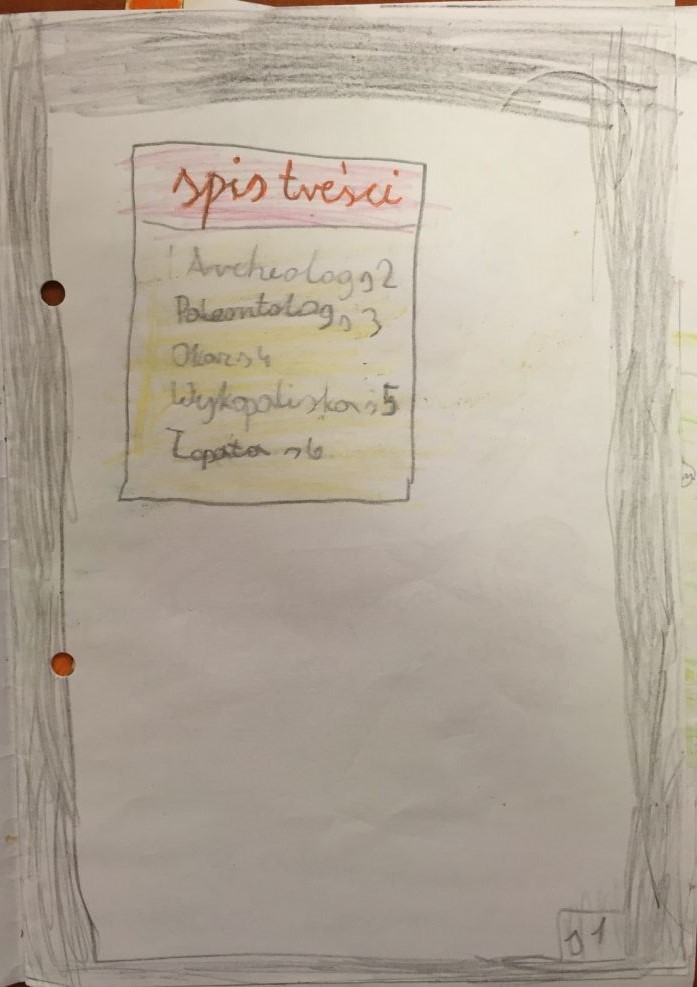 spis treści
Archeolog s 2
Paleontolog s 3
Okaz s 4
Wykopaliska s 5
Łopata s 6
s 1